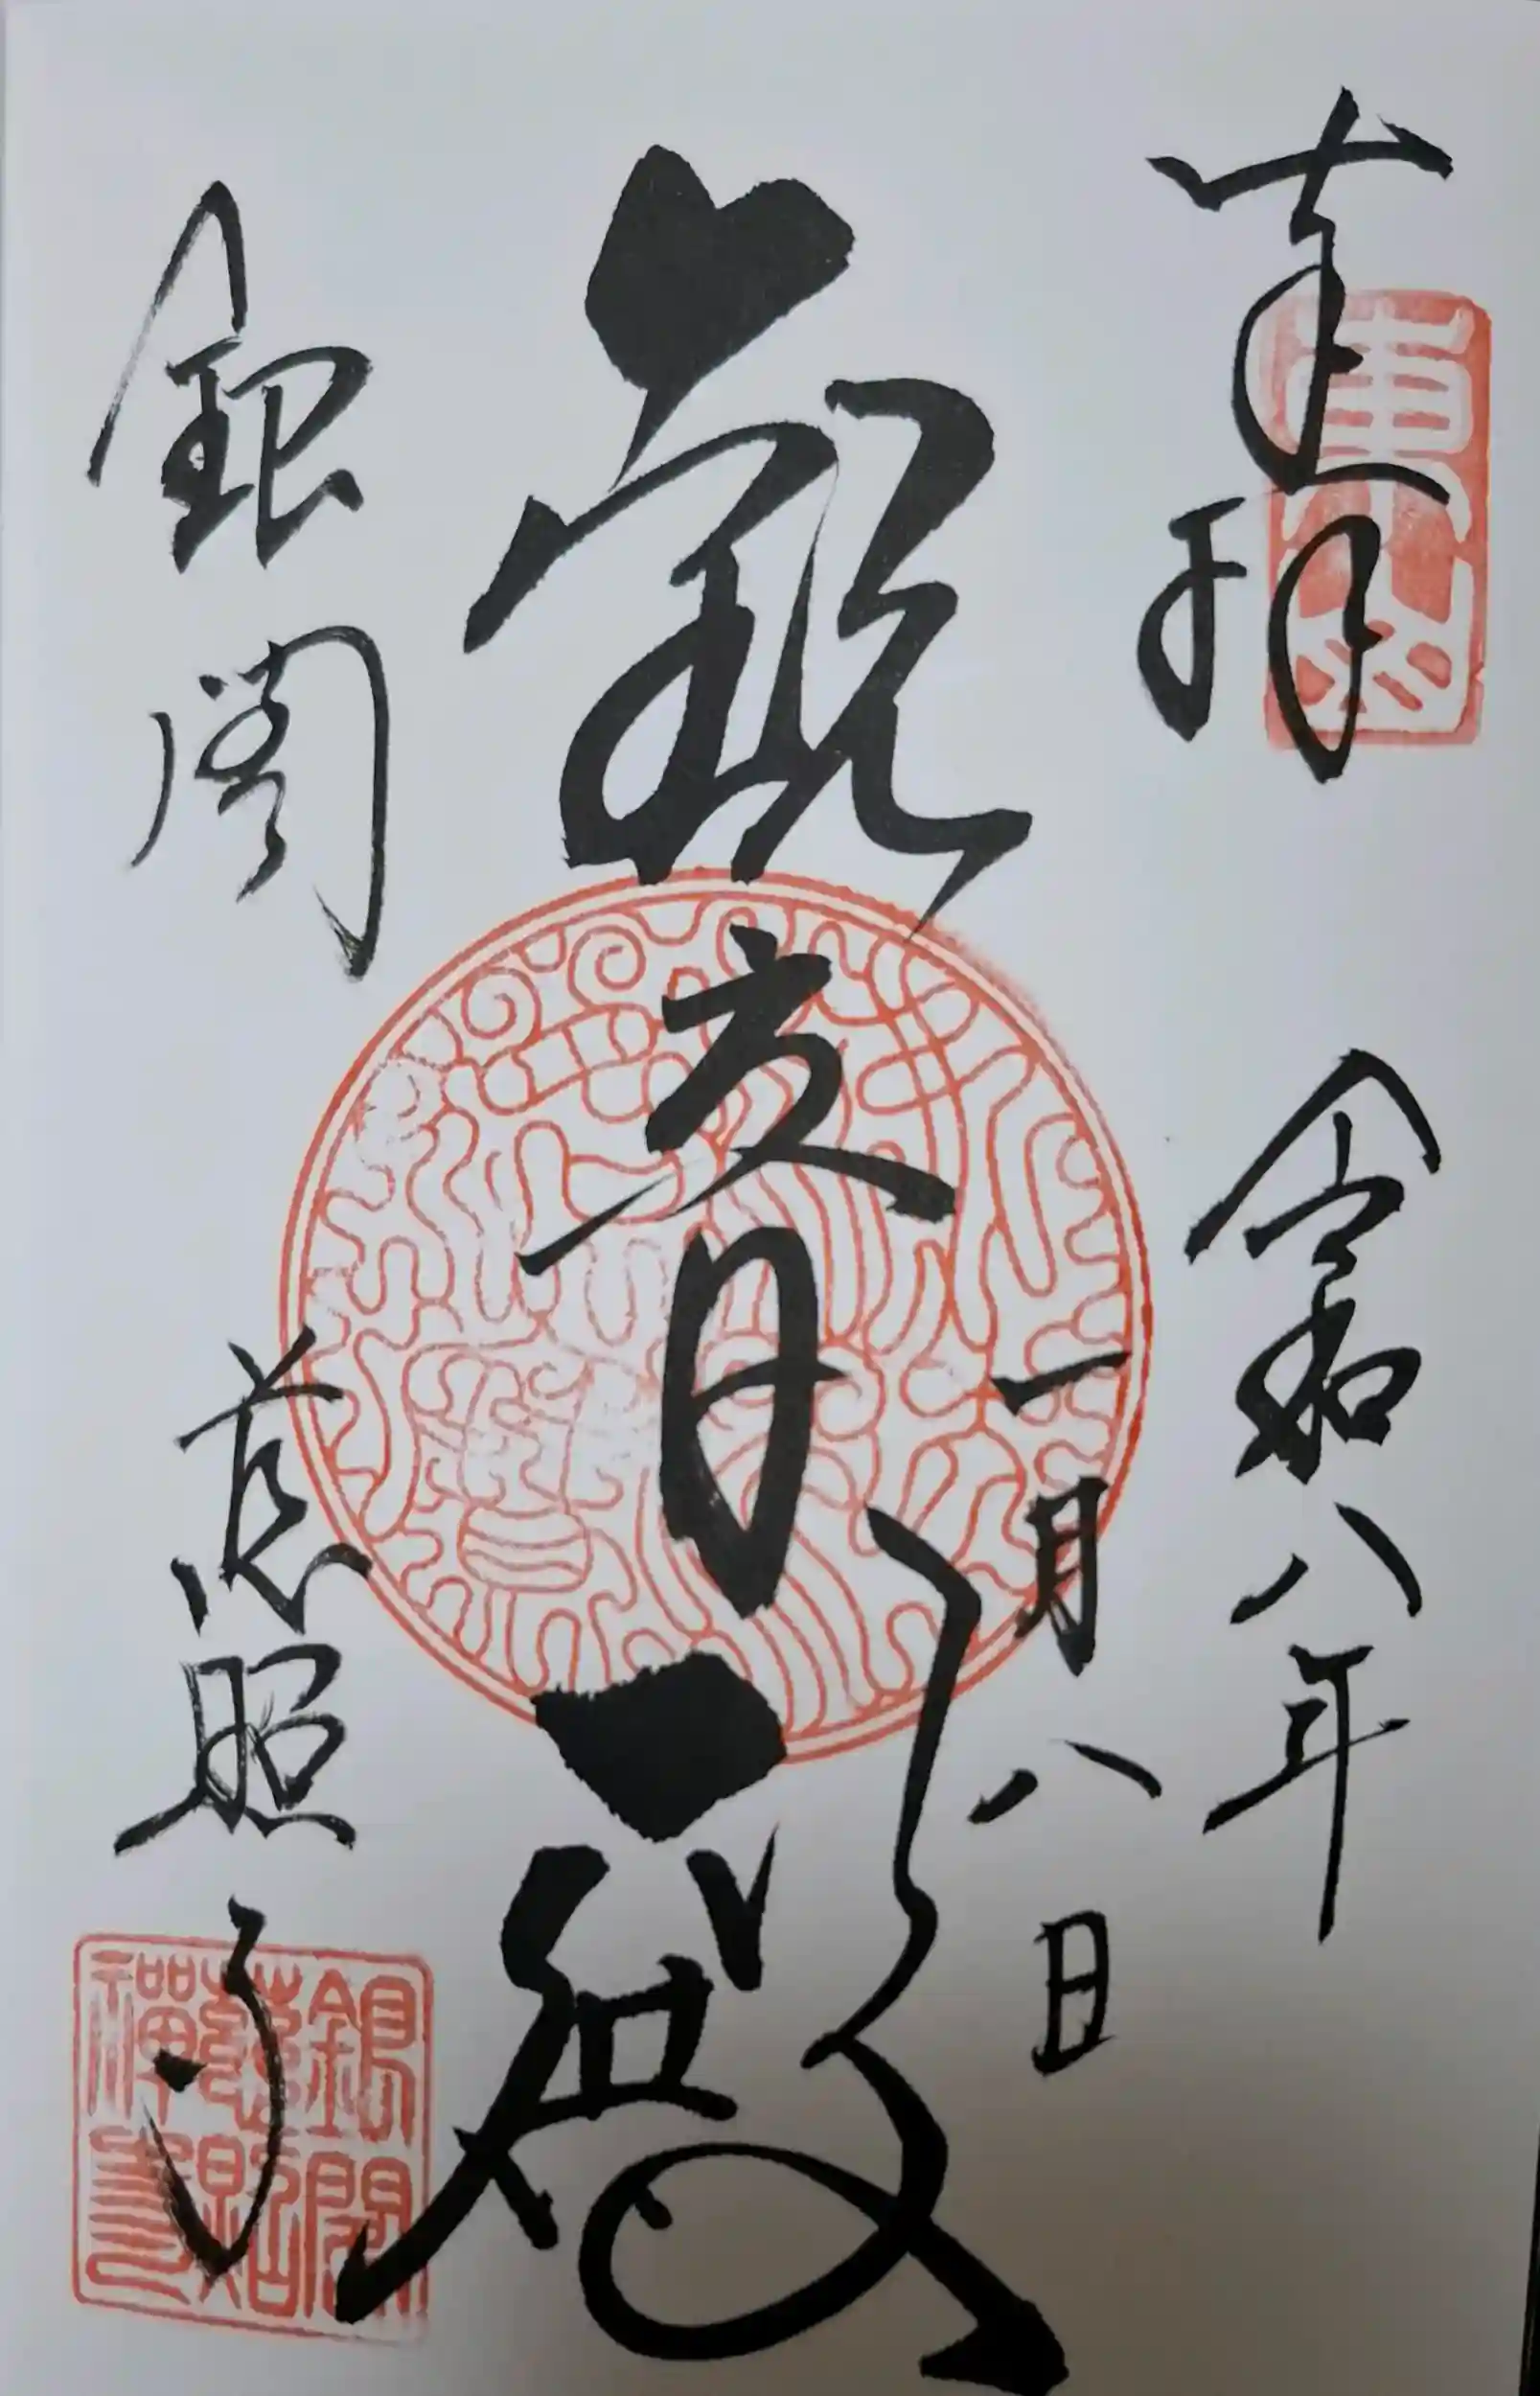 奉拝
令和八年
一月八日
観音殿
銀閣
慈照寺
銀閣
慈照
禪寺